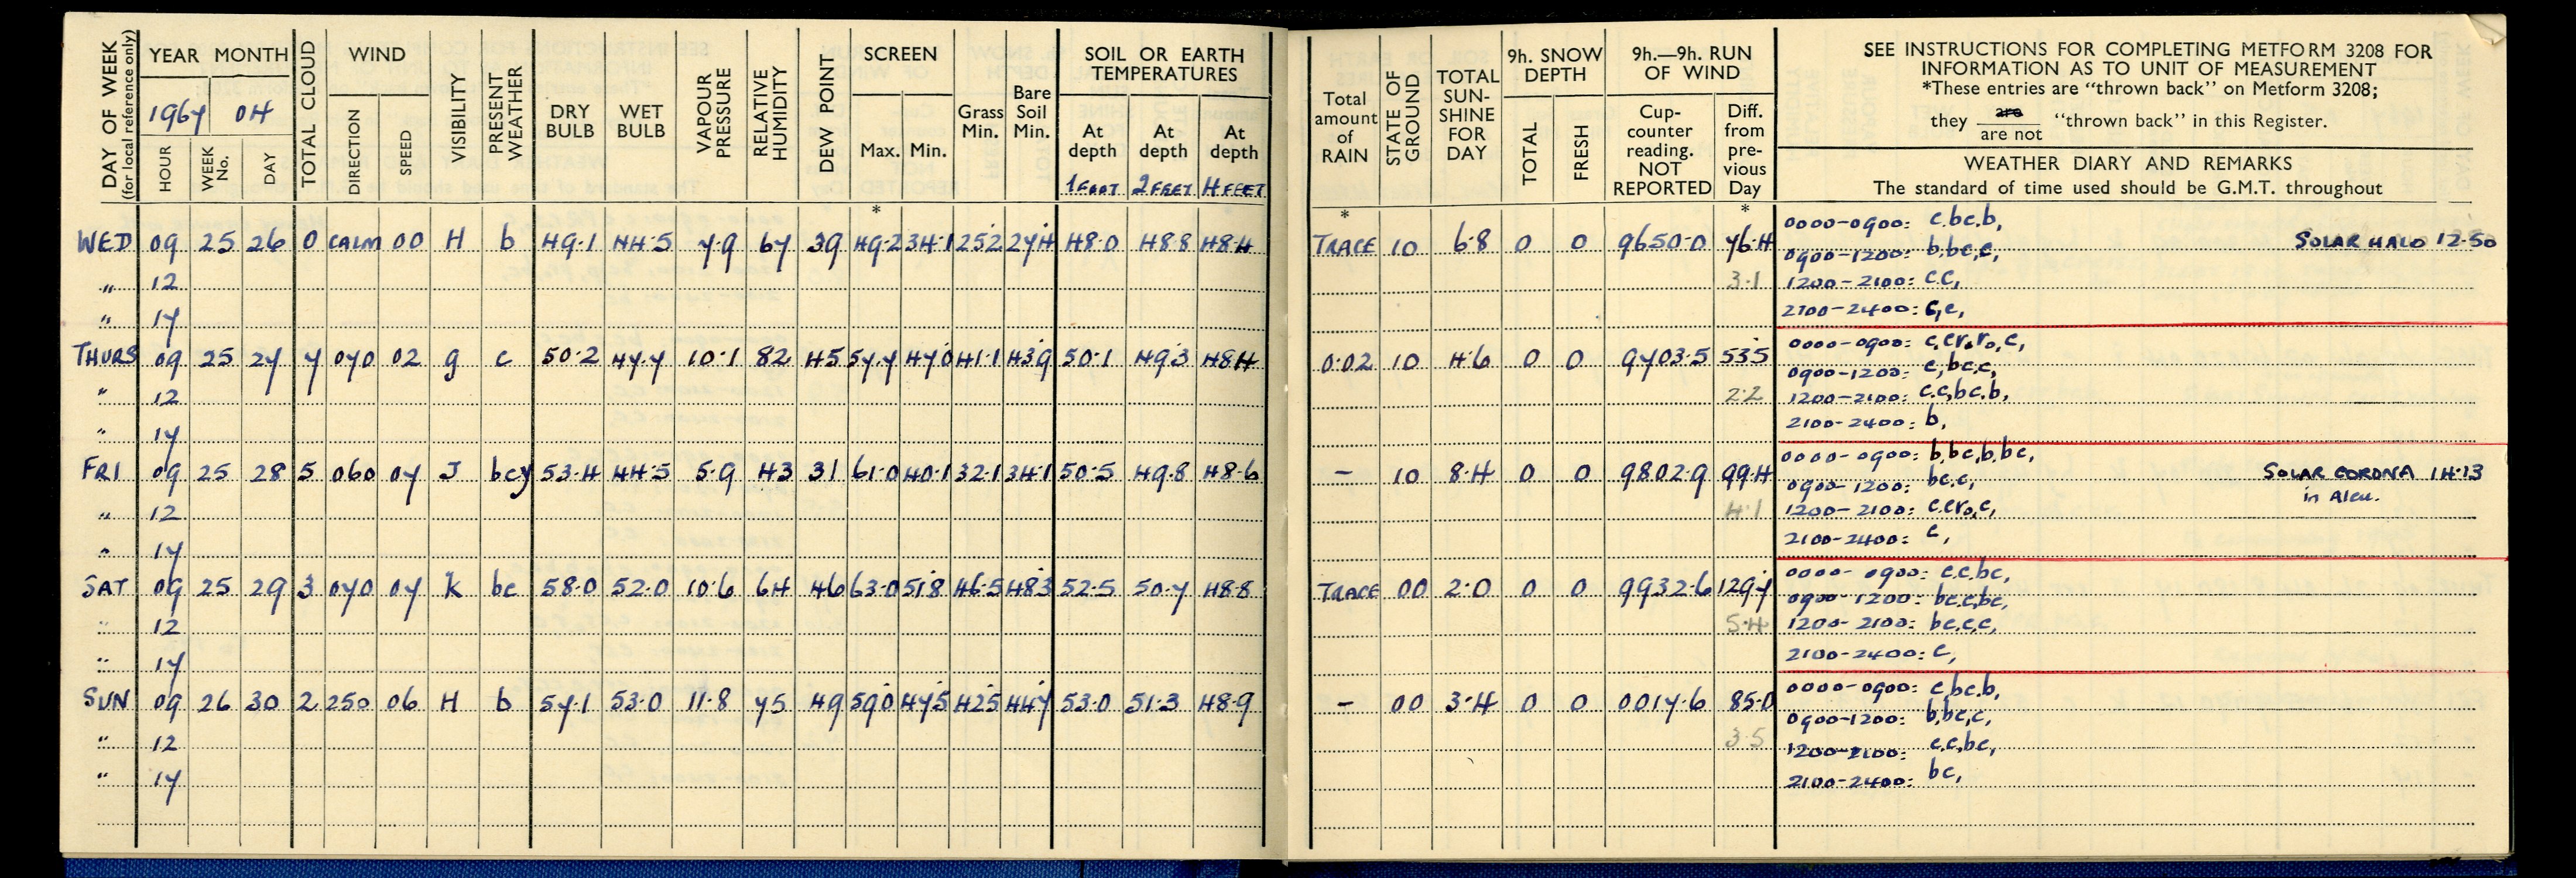 DAY OF WEEK
(for local reference only)
YEAR MONTH
1967 04
HOUR
WEEK No.
DAY
TOTAL CLOUD
WIND
DIRECTION
SPEED
VISIBILITY
PRESENT WEATHER
DRY BULB
WET BULB
VAPOUR PRESSURE
RELATIVE HUMIDITY
DEW POINT
SCREEN
Max. Min.
*
Grass Min.
Bare Soil Min.
SOIL OR EARTH
TEMPERATURES
At depth At depth At depth
1 FOOT 2 FEET 4 FEET
WED 09 25 26 0 CALM 00 H b 49.1 44.5 7.9 67 39 49.2 34.1 25.2 27.4 48.0 48.8 48.4
" 12
" 17
THURS 09 25 27 7 070 02 g c 50.2 47.7 10.1 82 45 57.7 47.0 41.1 43.9 50.1 49.3 48.4
" 12
" 17
FRI 09 25 28 5 060 07 J bcy 53.4 44.5 5.9 43 31 61.0 40.1 32.1 34.1 50.5 49.8 48.6
" 12
" 17
SAT 09 25 29 3 070 07 K bc 58.0 52.0 10.6 64 46 63.0 51.8 46.5 48.3 52.5 50.7 48.8
" 12
" 17
SUN 09 26 30 2 250 06 H b 57.1 53.0 11.8 75 49 59.0 47.5 42.5 44.7 53.0 51.3 48.9
" 12
" 17
Total amount of RAIN
*
STATE OF GROUND
TOTAL SUN-SHINE FOR DAY
9h. SNOW DEPTH
TOTAL
FRESH
9h.—9h. RUN OF WIND
Cup-counter reading. NOT REPORTED
Diff. from pre-vious Day
*
SEE INSTRUCTIONS FOR COMPLETING METFORM 3208 FOR
INFORMATION AS TO UNIT OF MEASUREMENT
*These entries are "thrown back" on Metform 3208;
they are / are not "thrown back" in this Register.
WEATHER DIARY AND REMARKS
The standard of time used should be G.M.T. throughout
TRACE 10 6.8 0 0 9650.0 76.4
3.1
0000-0900: c,bc,b,
0900-1200: b,bc,c, SOLAR HALO 12.50
1200-2100: c,c,
2100-2400: c,c,
0.02 10 4.6 0 0 9703.5 53.5
2.2
0000-0900: c,cr₀,r₀,c,
0900-1200: c,bc,c,
1200-2100: c,c,bc,b,
2100-2400: b,
- 10 8.4 0 0 9802.9 99.4
4.1
0000-0900: b,bc,b,bc,
0900-1200: bc,c, SOLAR CORONA 14.13
in Alcu.
1200-2100: c,cr₀,c,
2100-2400: c,
TRACE 00 2.0 0 0 9932.6 129.7
5.4
0000-0900: c,c,bc,
0900-1200: bc,c,bc,
1200-2100: bc,c,c,
2100-2400: c,
- 00 3.4 0 0 0017.6 85.0
3.5
0000-0900: c,bc,b,
0900-1200: b,bc,c,
1200-2100: c,c,bc,
2100-2400: bc,